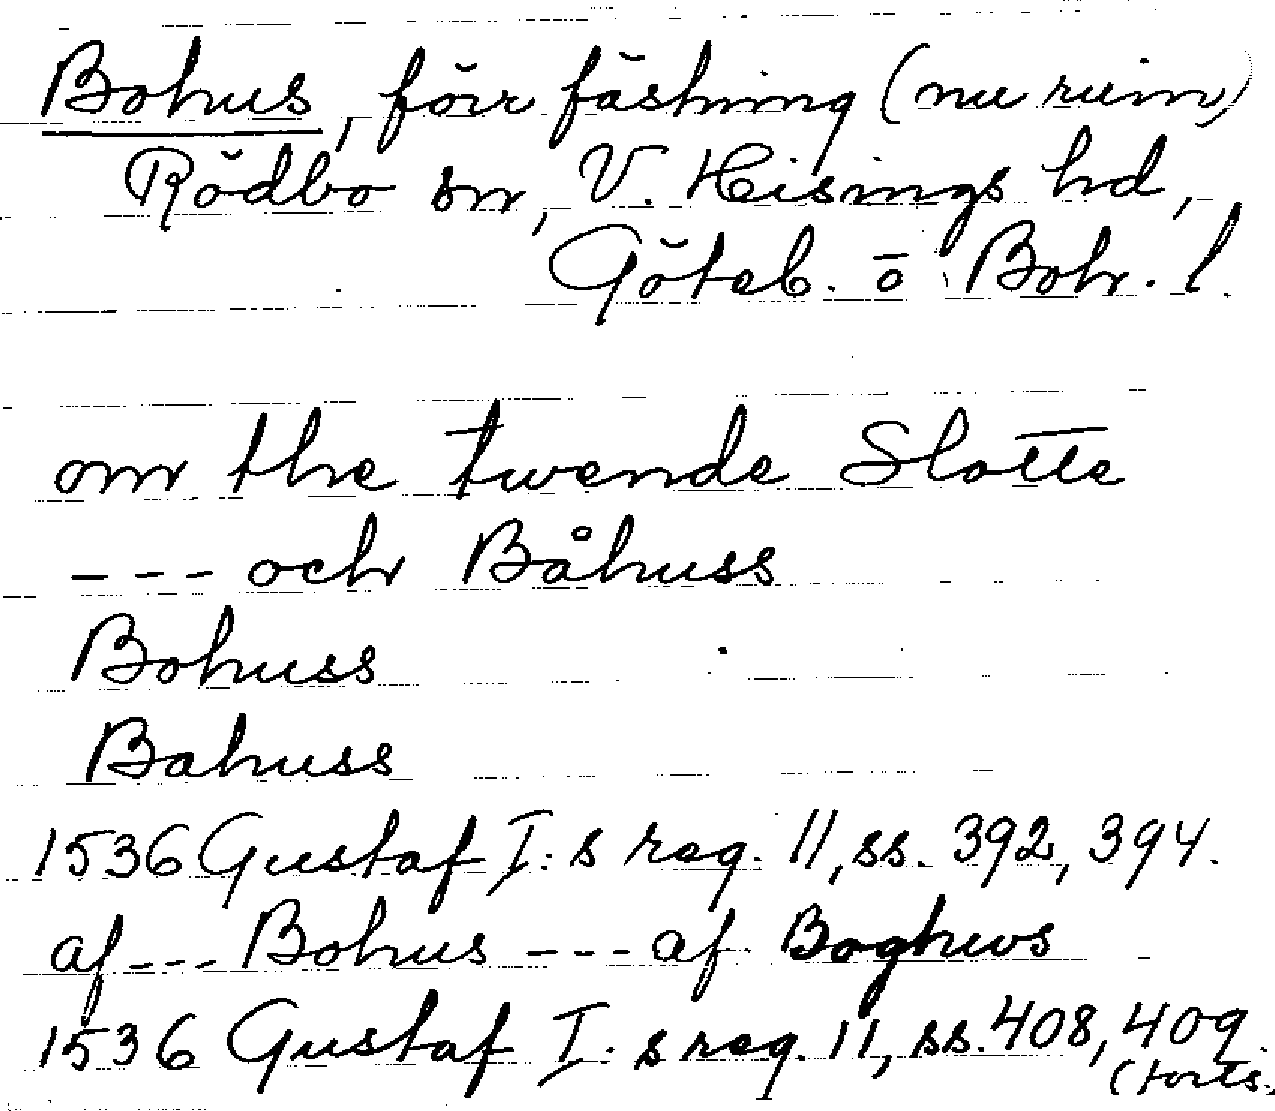 Bohus, förr fästning (nu ruin)
Rödbo sn, V. Hisings hd,
Göteb. o Boh. l.
om the twende Slotte
--- och Båhuss
Bohuss
Bahuss
1536 Gustaf I:s reg. 11, ss. 392, 394.
af --- Bohus --- af Boghws
1536 Gustaf I:s reg. 11, ss. 408, 409.
(forts.